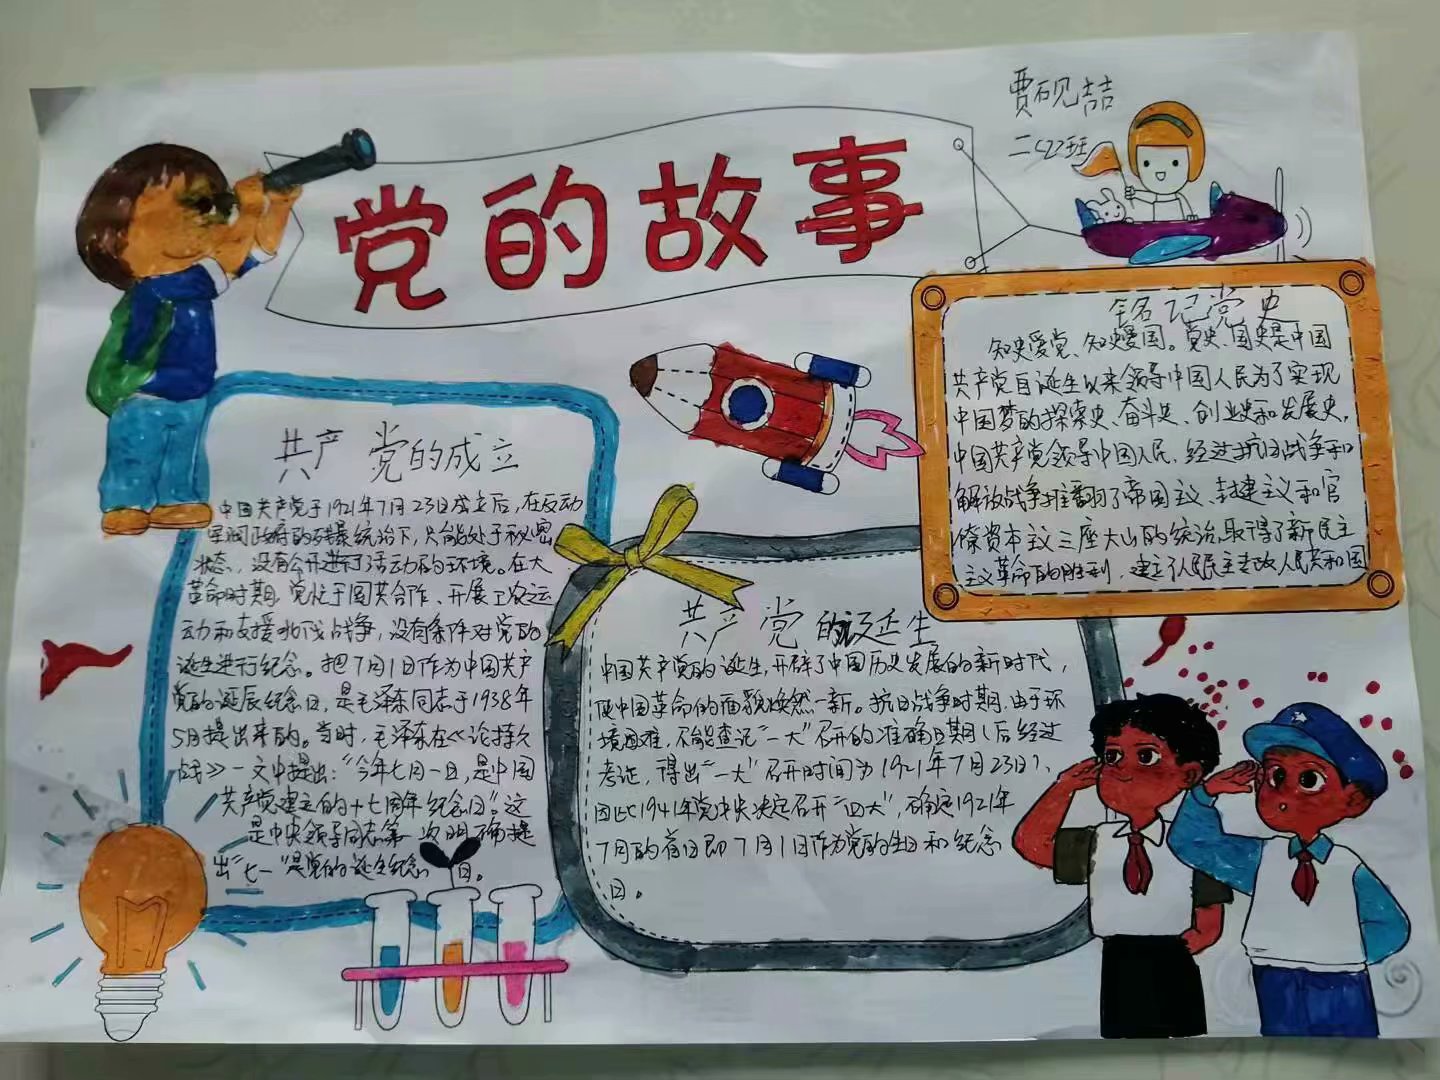 党的故事
贾砚喆
二(2)班
铭记党史
知史爱党、知史爱国。党史、国史是中国
共产党自诞生以来领导中国人民为了实现
中国梦的探索史、奋斗史、创业史和发展史。
中国共产党领导中国人民、经过抗日战争和
解放战争推翻了帝国主义、封建主义和官
僚资本主义三座大山的统治，取得了新民主
主义革命的胜利，建立了人民民主专政人民共和国
共产党的成立
中国共产党于1921年7月23日成立后，在反动
军阀政府的残暴统治下，只能处于秘密
状态，没有公开进行活动的环境。在大
革命时期，党忙于国共合作、开展工农运
动和支援北伐战争，没有条件对党的
诞生进行纪念。把7月1日作为中国共产
党的诞辰纪念日，是毛泽东同志于1938年
5月提出来的。当时，毛泽东在《论持久
战》一文中提出："今年七月一日，是中国
共产党建立的十七周年纪念日"。这
是中央领导同志第 次明确提
出"七一"是党的诞生纪念 日。
共产党的诞生
中国共产党的诞生，开辟了中国历史发展的新时代，
使中国革命的面貌焕然一新。抗日战争时期，由于环
境困难，不能查记"一大"召开的准确日期(后经过
考证，得出"一大"召开时间为1921年7月23日)、
因此1941年党中央决定召开"四大"，确定1921年
7月的首日即7月1日作为党的生日和纪念
日。